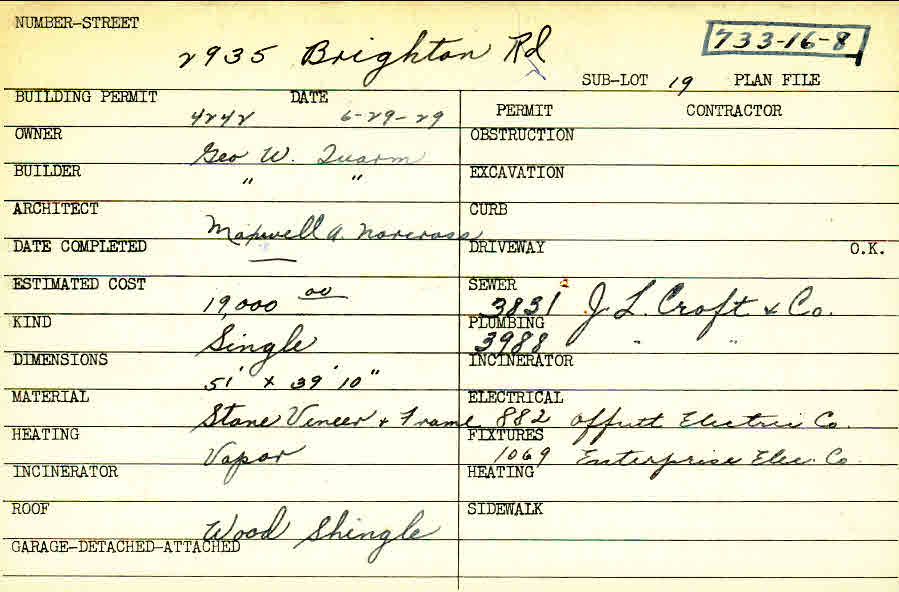 NUMBER-STREET
2935 Brighton Rd
733-16-8
SUB-LOT 19 PLAN FILE
BUILDING PERMIT 4242 DATE 6-29-29
PERMIT CONTRACTOR
OWNER Geo W. Quarm
OBSTRUCTION
BUILDER " "
EXCAVATION
ARCHITECT Maxwell A. Norcross
CURB
DATE COMPLETED —
DRIVEWAY O.K.
ESTIMATED COST 19,000 00
SEWER 3831 J. L. Croft & Co.
KIND Single
PLUMBING 3988 " "
DIMENSIONS 51' x 39' 10"
INCINERATOR
MATERIAL Stone Veneer + Frame
ELECTRICAL 882 Offutt Electric Co.
HEATING Vapor
FIXTURES 1069 Enterprise Elec. Co.
INCINERATOR
HEATING
ROOF Wood Shingle
SIDEWALK
GARAGE-DETACHED-ATTACHED